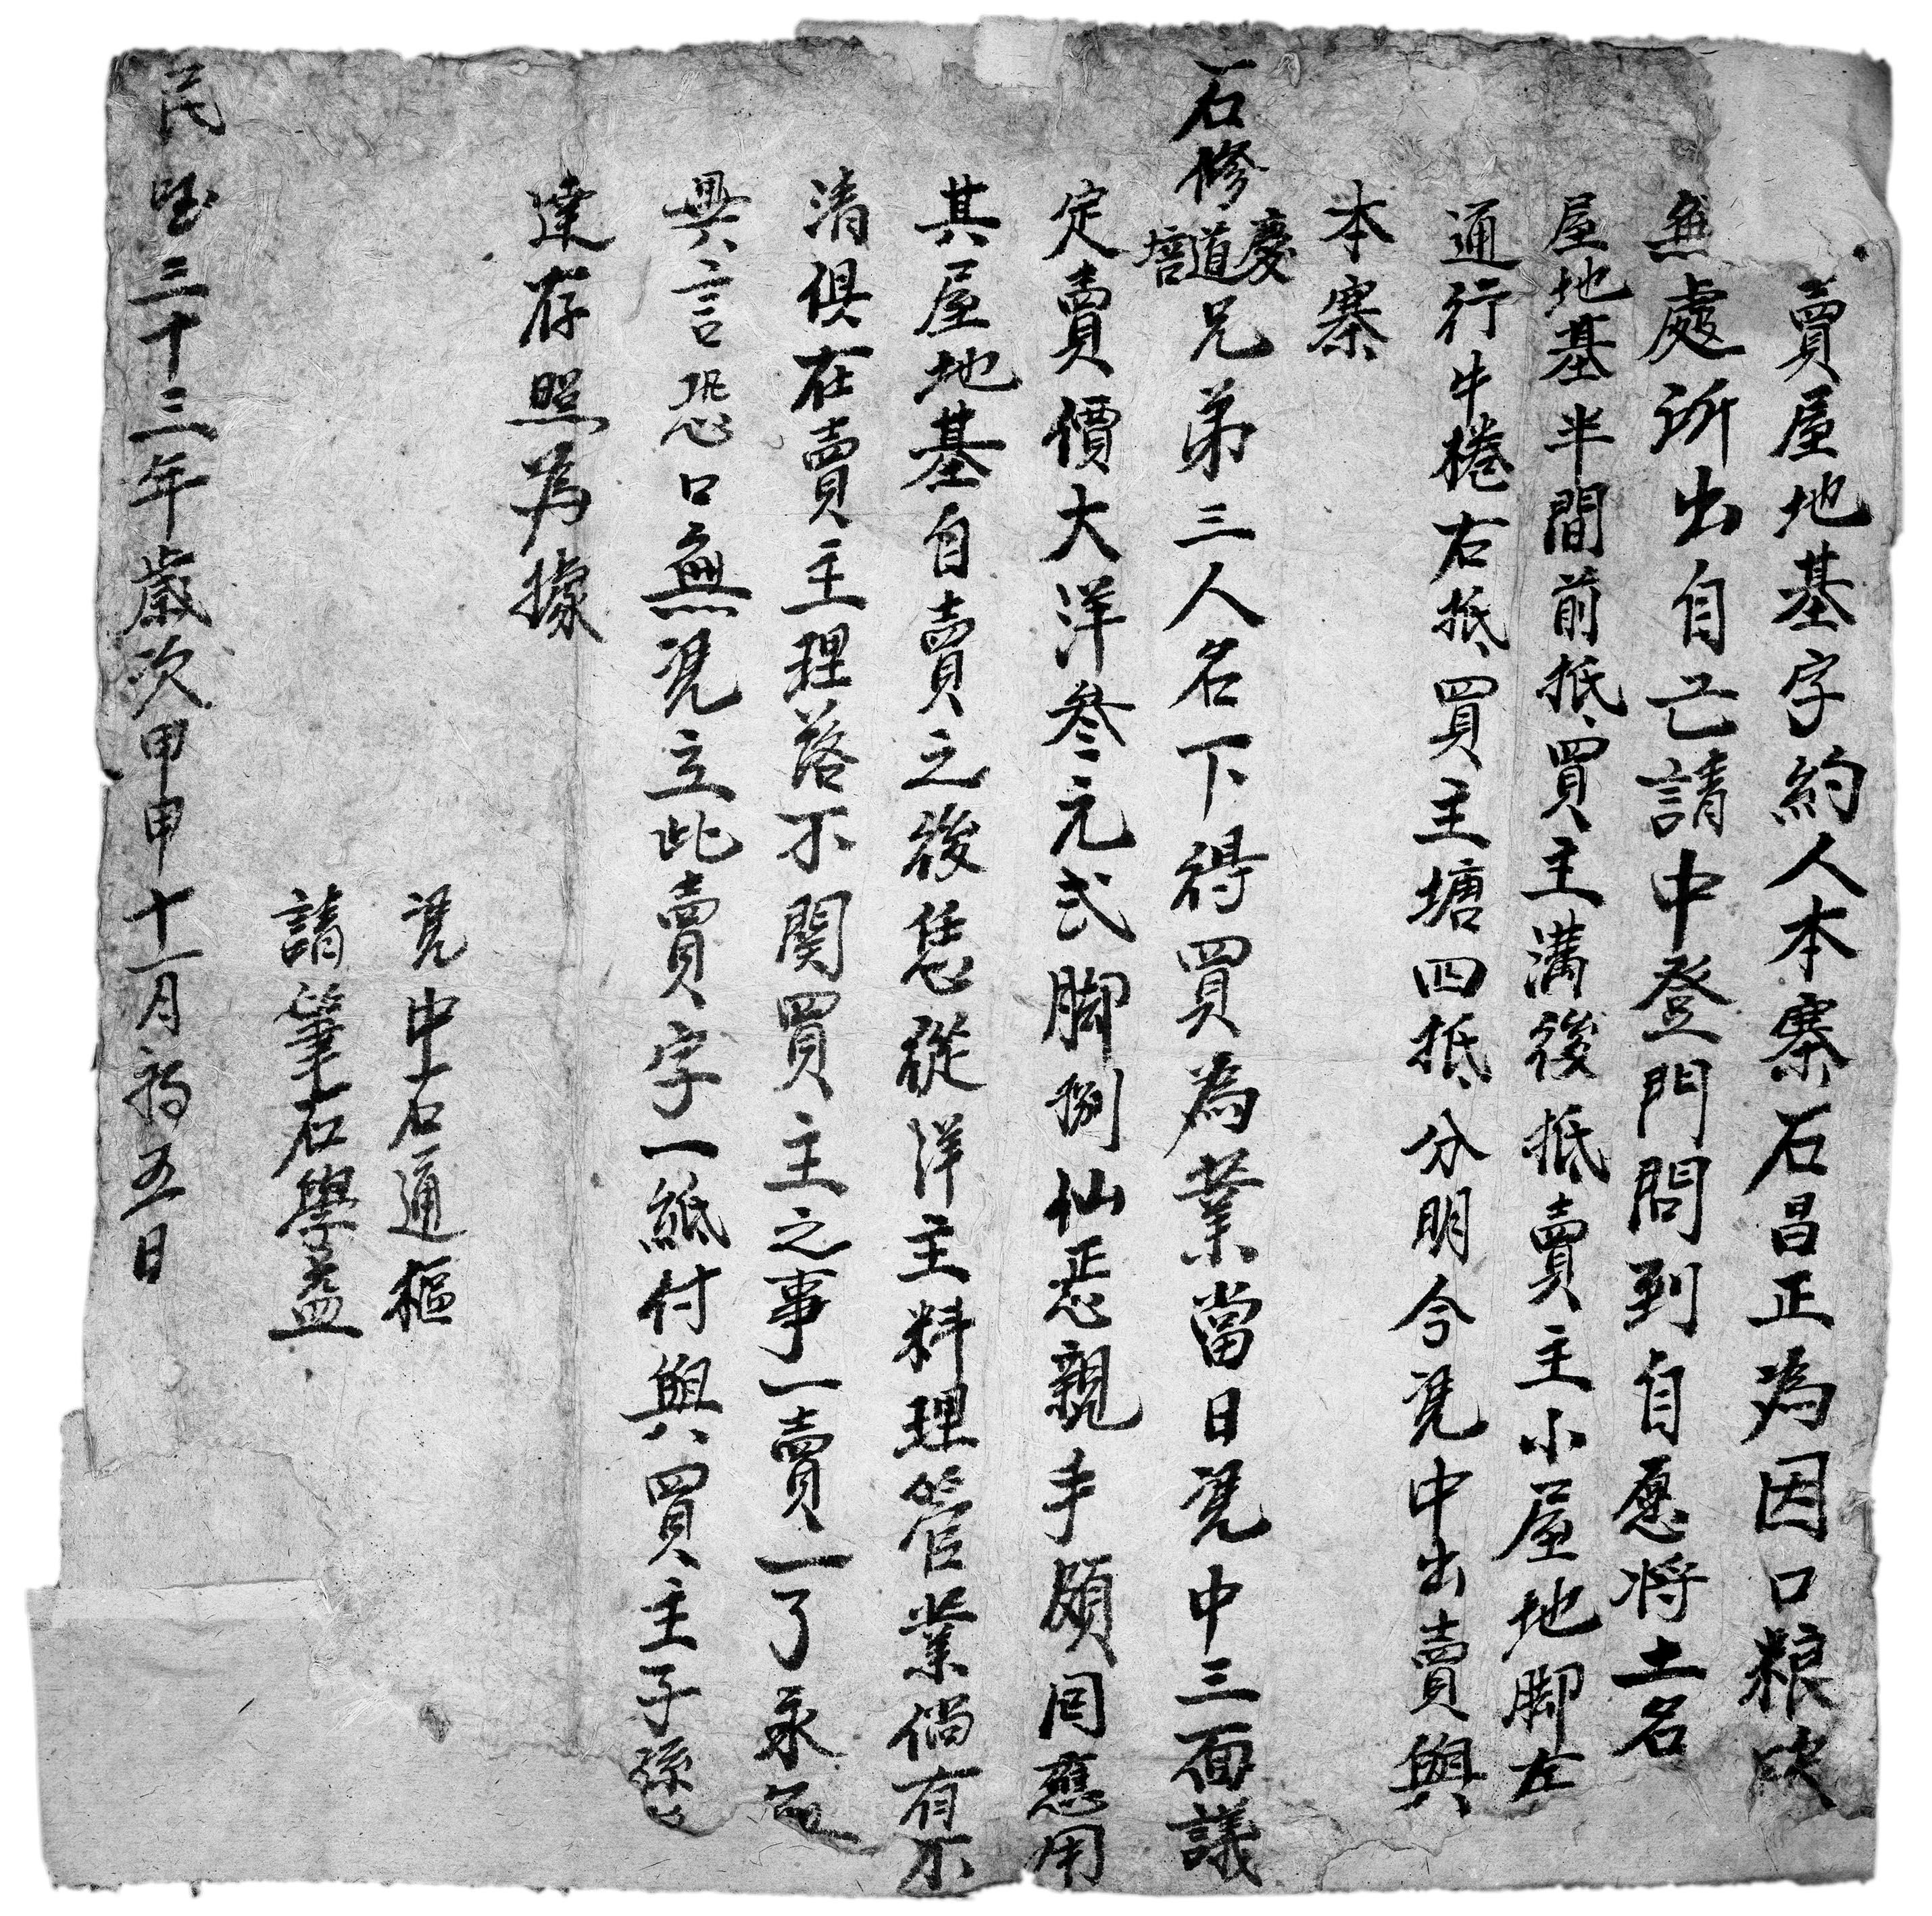 賣屋地基字約人本寨石昌正為因口粮缺
無處所出自亡請中登門問到自愿将土名
屋地基半間前抵買主溝後抵賣主小屋地脚左
通行牛棬右抵買主塘四抵分明今凴中出賣與
本寨
石修慶道信兄弟三人名下得買為業當日凴中三面議
定賣價大洋叁元弍脚捌仙正恁親手領囘應用
其屋地基自賣之後恁從洋主料理管業倘有不
清俱在賣主理落不関買主之事一賣一了永
異言恐口無凴立此賣字一紙付與買主子孫
達存照為據
凴中石通樞
請筆石學益
民国三十三年歲次甲申十一月初五日